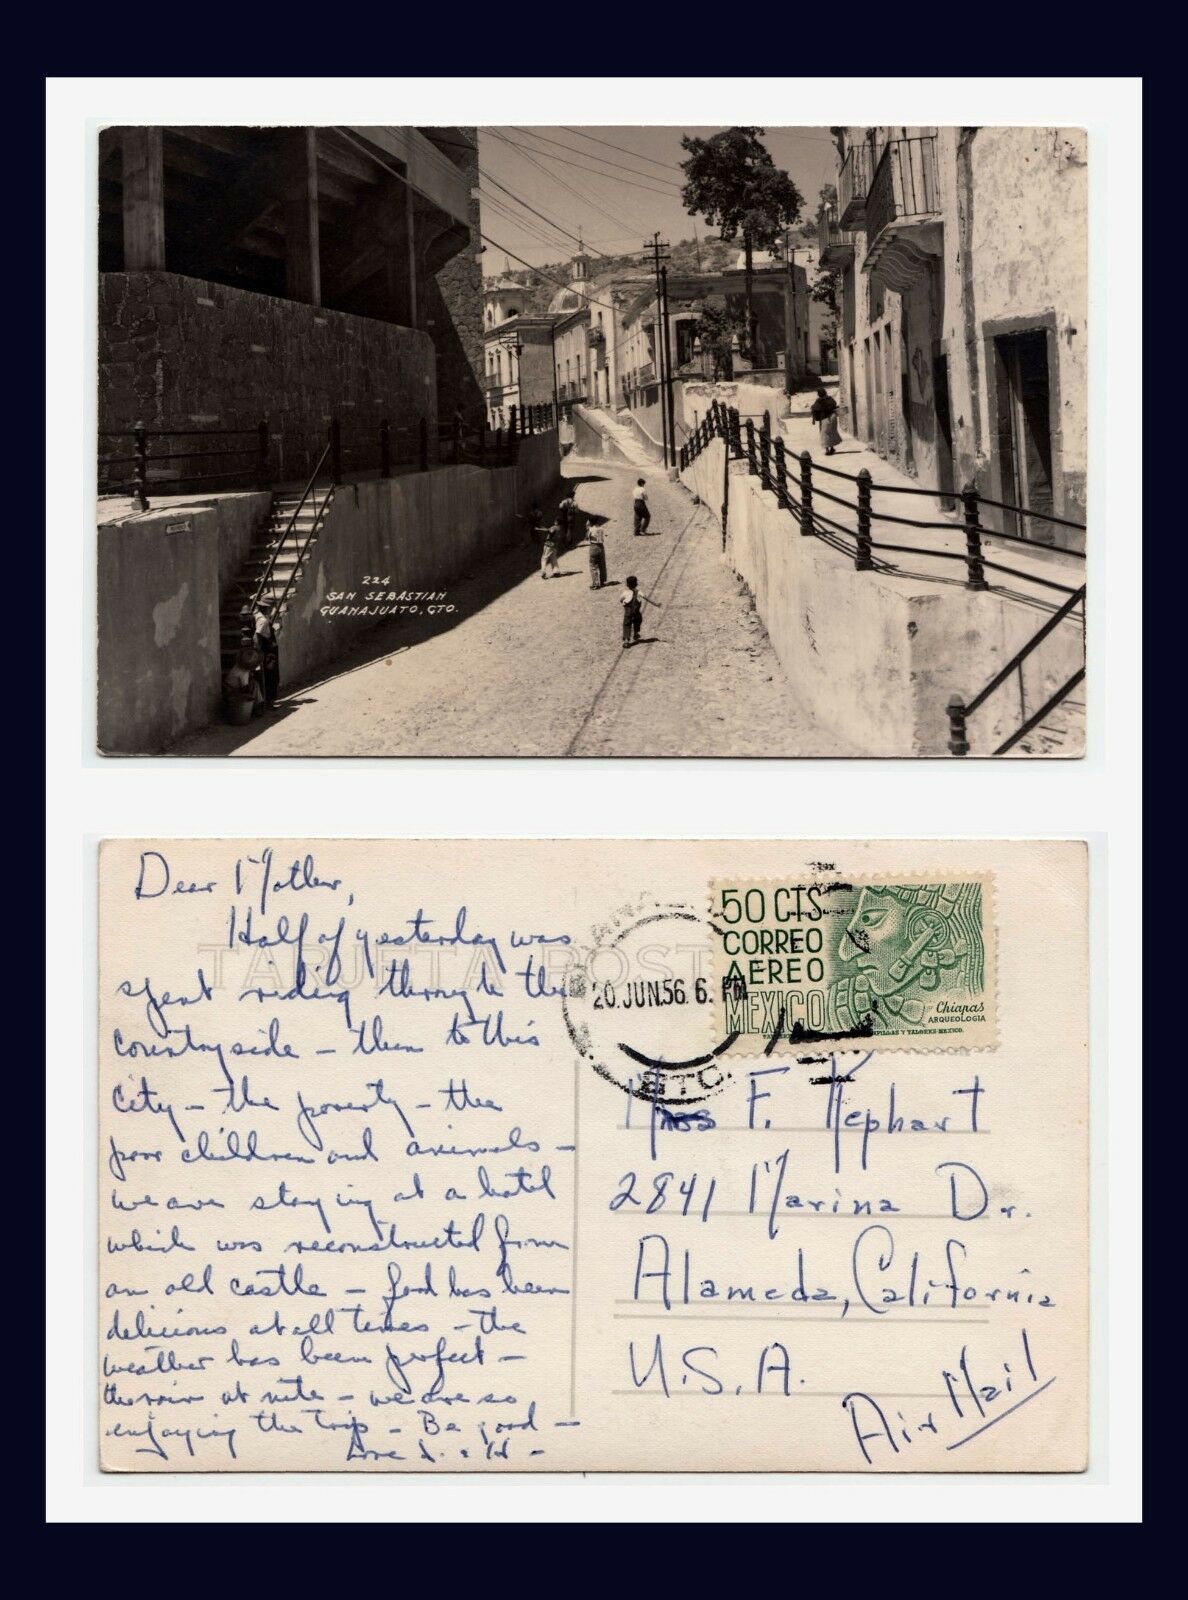 224
SAN SEBASTIAN
GUANAJUATO, GTO.
TARJETA POSTAL
Dear Mother,
Half of yesterday was
spent riding through the
countryside – then to this
city – the poverty – the
poor children and animals –
we are staying at a hotel
which was reconstructed from
an old castle – food has been
delicious at all times – the
weather has been perfect –
the rain at nite – we are so
enjoying the trip – Be good –
Love
50 CTS
CORREO
AEREO
MEXICO
Chiapas
ARQUEOLOGIA
20. JUN.56. 6. PM
GTO.
F. Kephart
2841 Marina Dr.
Alameda, California
U.S.A.
Air Mail